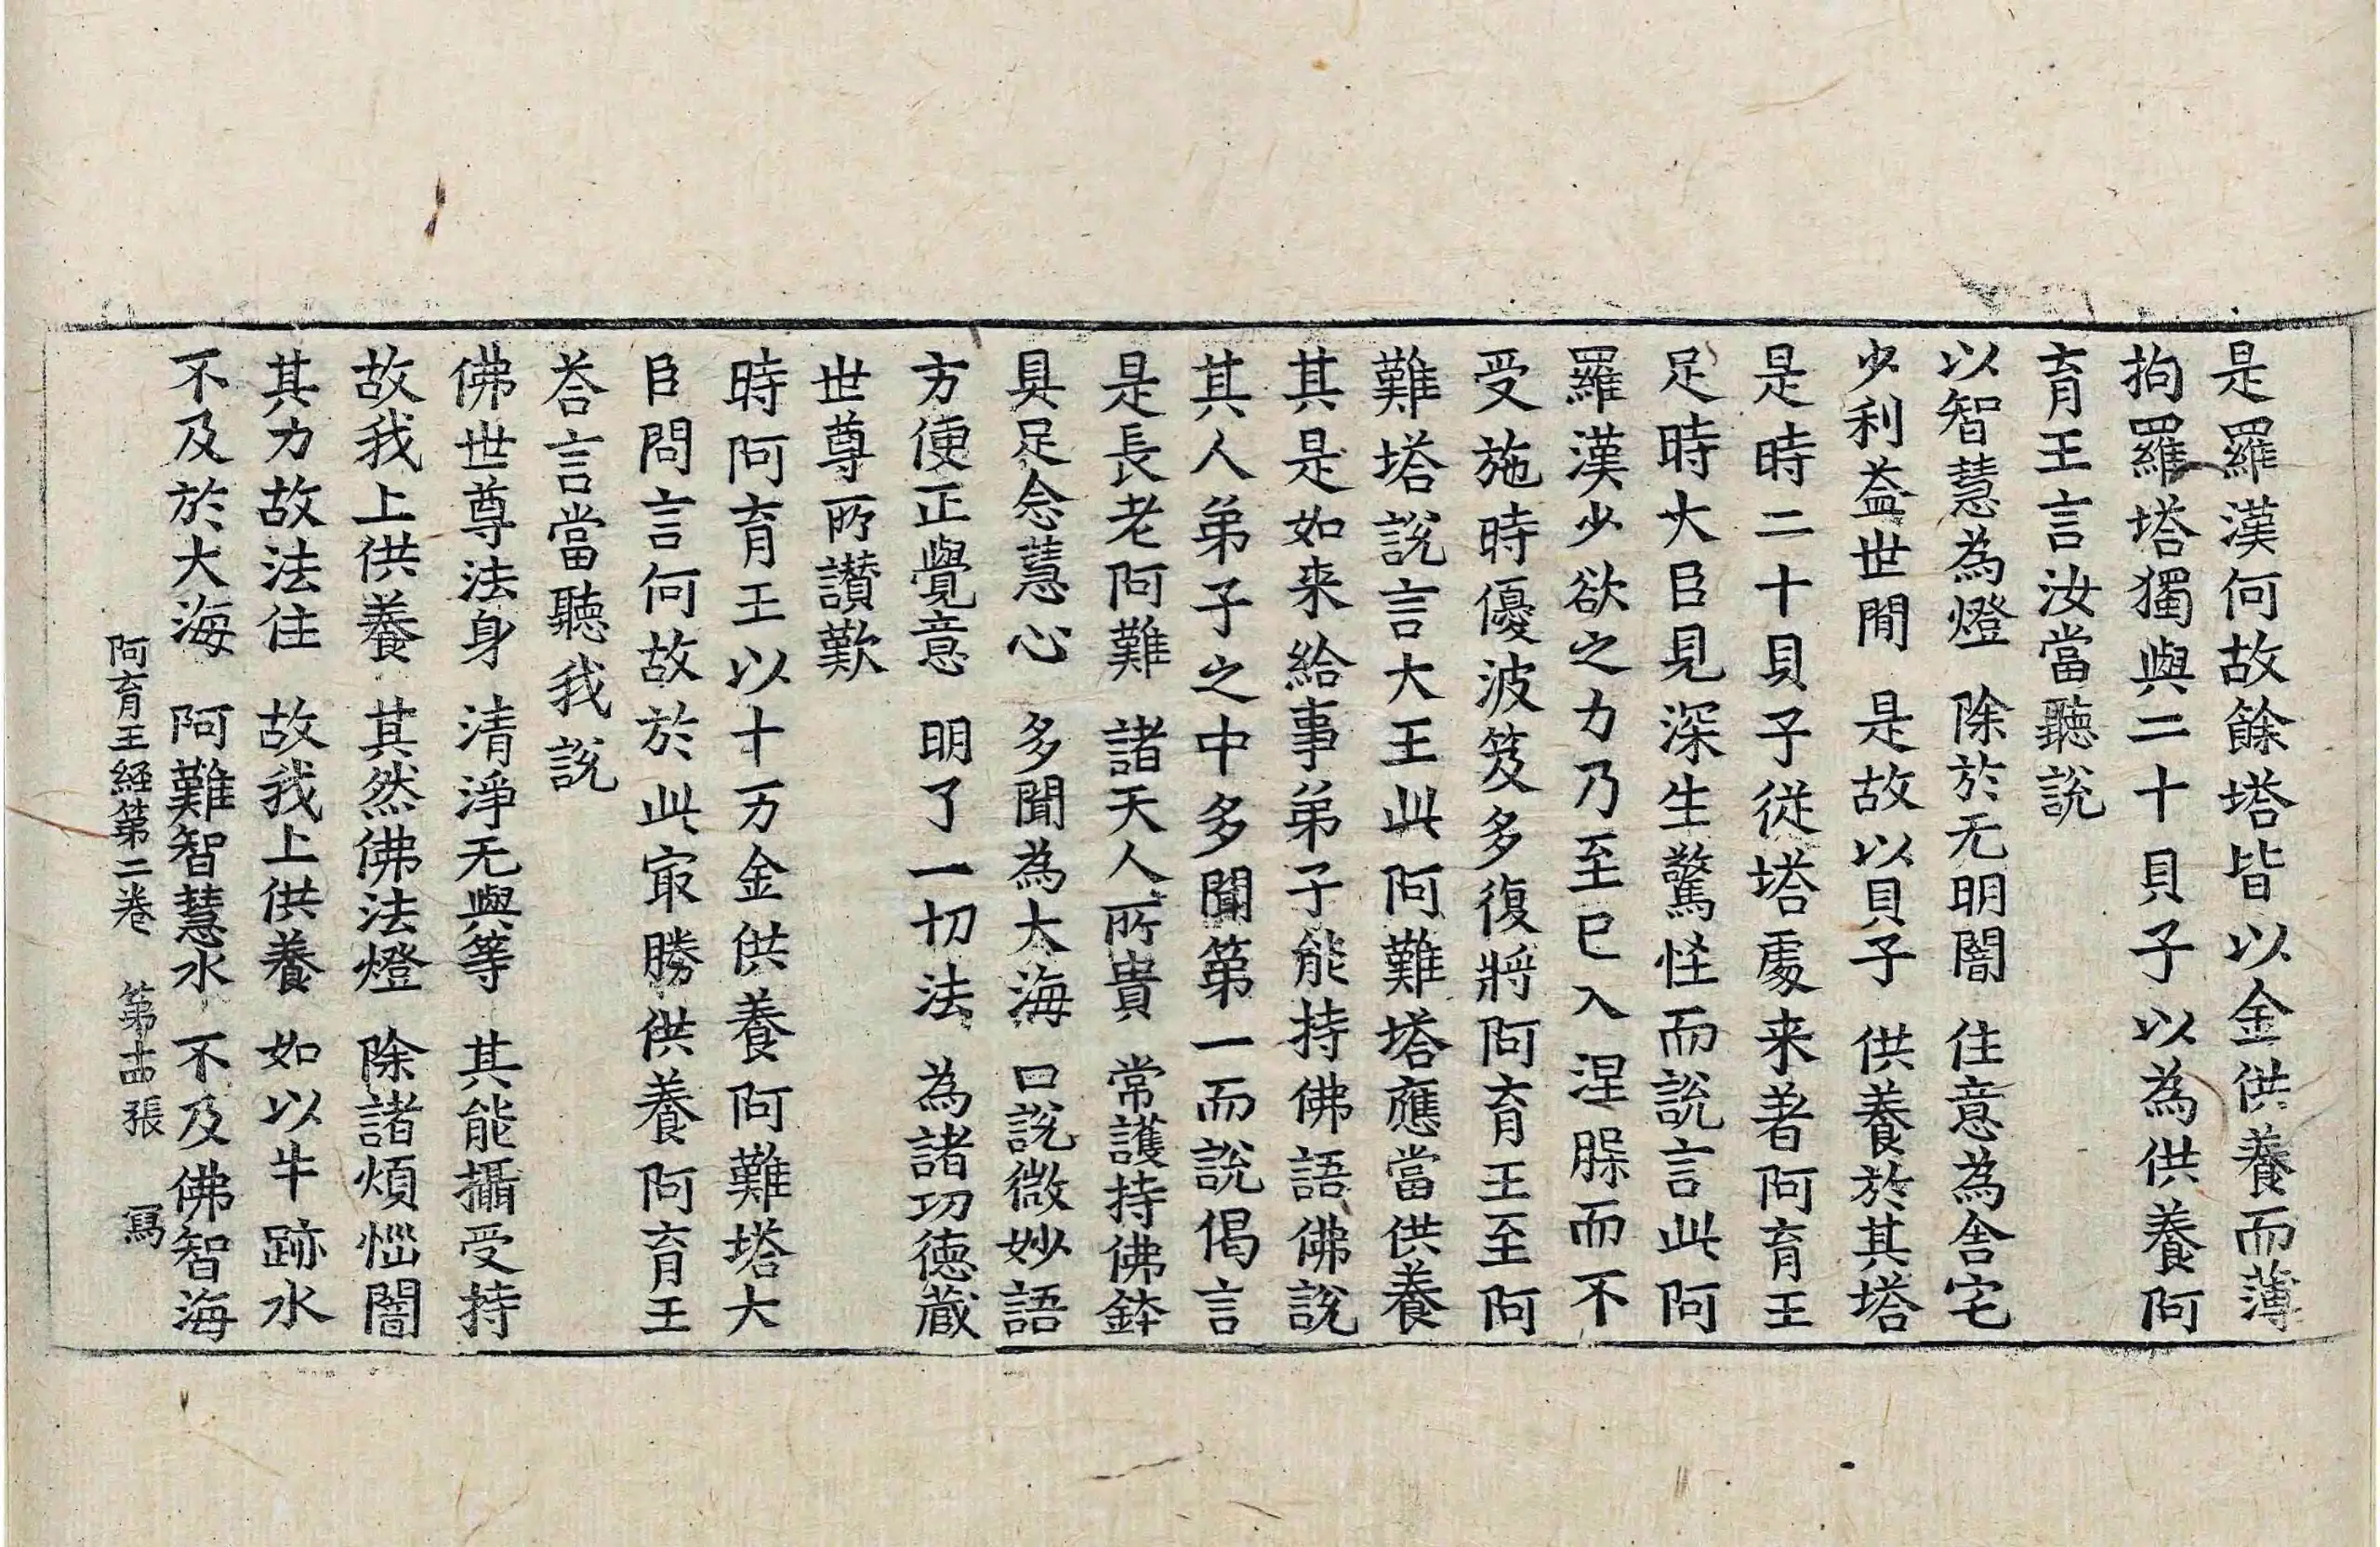 是羅漢何故餘塔皆以金供養而薄
拘羅塔獨與二十貝子以為供養阿
育王言汝當聽說
以智慧為燈 除於无明闇 住意為舎宅
少利益世間 是故以貝子 供養於其塔
是時二十貝子從塔處来著阿育王
足時大臣見深生驚怪而說言此阿
羅漢少欲之力乃至已入涅槃而不
受施時優波笈多復將阿育王至阿
難塔說言大王此阿難塔應當供養
其是如来給事弟子能持佛語佛說
其人弟子之中多聞第一而說偈言
是長老阿難 諸天人所貴 常護持佛鉢
具足念慧心 多聞為大海 口說微妙語
方便正覺意 明了一切法 為諸功徳蔵
世尊所讃歎
時阿育王以十万金供養阿難塔大
臣問言何故於此㝡勝供養阿育王
荅言當聽我說
佛世尊法身 清淨无與等 其能攝受持
故我上供養 其然佛法燈 除諸煩惱闇
其力故法住 故我上供養 如以牛跡水
不及於大海 阿難智慧水 不及佛智海
阿育王經第二卷 第十四張 寫